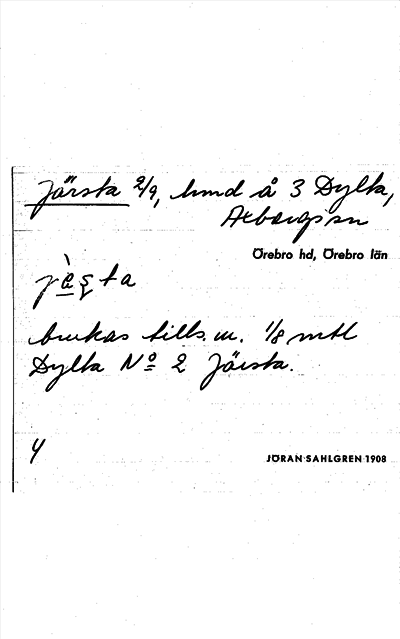 Järsta 2/9, hmd å 3 Dylta,
Axbergs sn
Örebro hd, Örebro län
jä̀ʂta
brukas tills. m. 1/8 mtl
Dylta No 2 Järsta.
4
JÖRAN SAHLGREN 1908